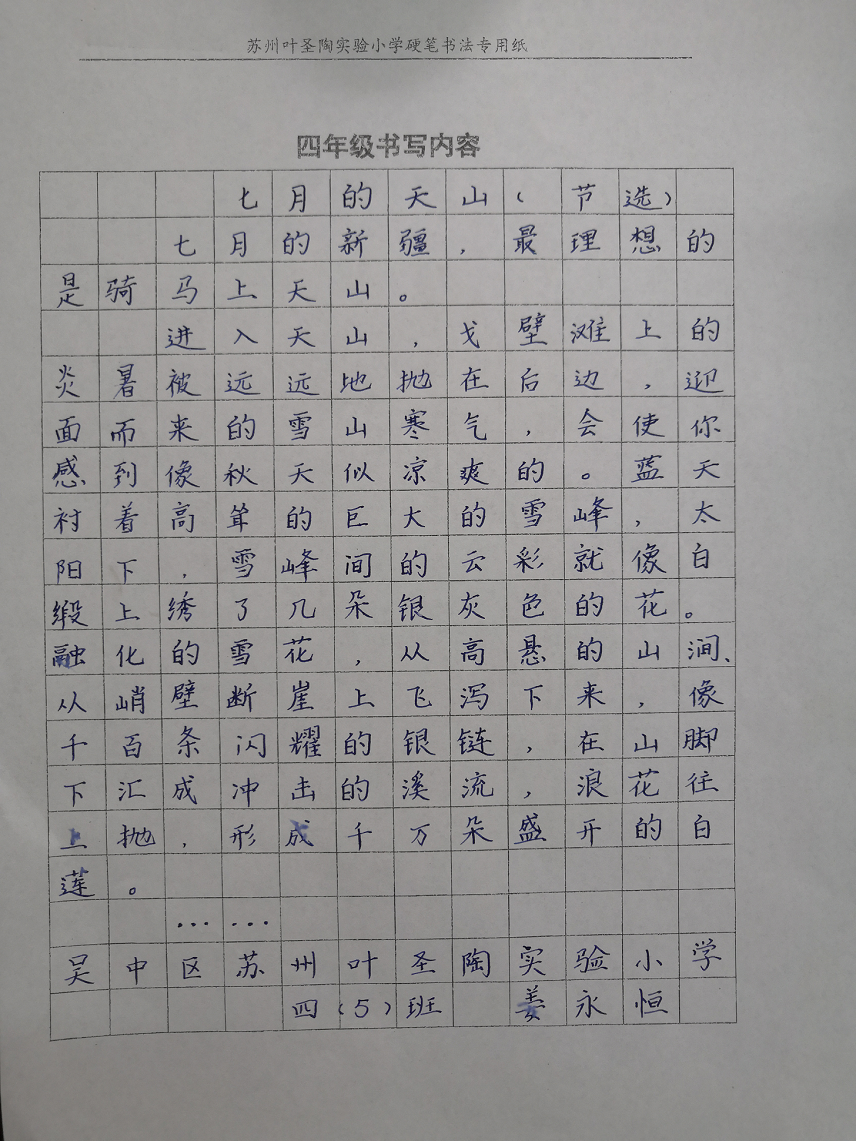 苏州叶圣陶实验小学硬笔书法专用纸
四年级书写内容
七月的天山(节选)
七月的新疆,最理想的
是骑马上天山。
进入天山,戈壁滩上的
炎暑被远远地抛在后边,迎
面而来的雪山寒气,会使你
感到像秋天似凉爽的。蓝天
衬着高耸的巨大的雪峰,太
阳下,雪峰间的云彩就像白
缎上绣了几朵银灰色的花。
融化的雪花,从高悬的山涧、
从峭壁断崖上飞泻下来,像
千百条闪耀的银链,在山脚
下汇成冲击的溪流,浪花往
上抛,形成千万朵盛开的白
莲。
……
吴中区苏州叶圣陶实验小学
四(5)班 姜永恒